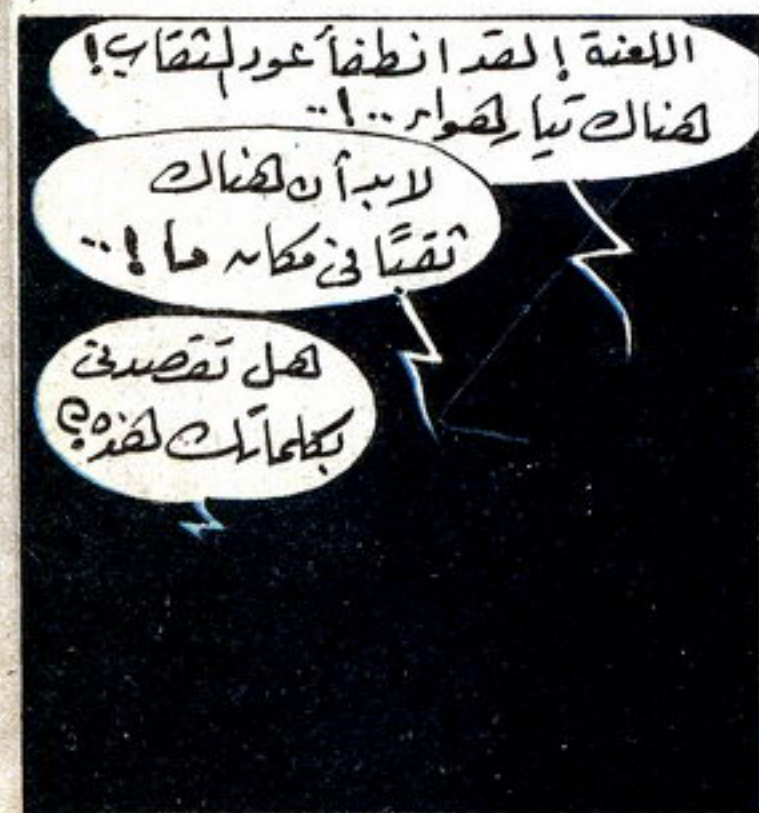 اللعنة ! لقد انطفأ عود الثقاب !
هناك تيار هواء ..!..
لابد أن هناك
ثقبًا في مكان ما !..
هل تقصدني
بكلماتك هذه ؟